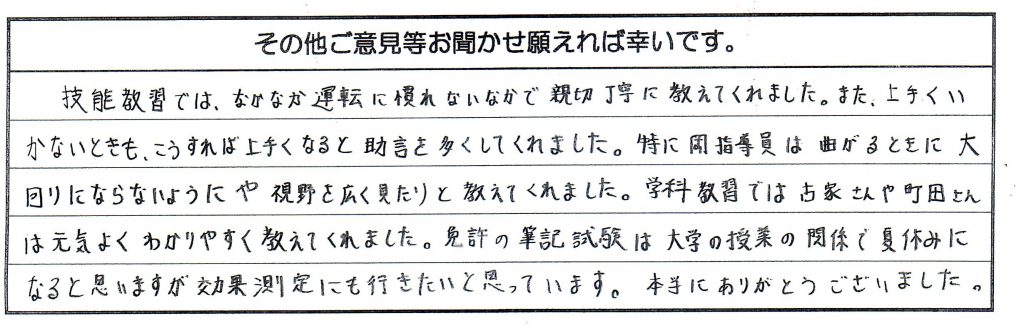 その他ご意見等お聞かせ願えれば幸いです。
技能教習では、なかなか運転に慣れないなかで親切丁寧に教えてくれました。また、上手くい
かないときも、こうすれば上手くなると助言を多くしてくれました。特に岡指導員は曲がるときに大
回りにならないようにや視野を広く見たりと教えてくれました。学科教習では古家さんや町田さん
は元気よくわかりやすく教えてくれました。免許の筆記試験は大学の授業の関係で夏休みに
なると思いますが効果測定にも行きたいと思っています。本当にありがとうございました。